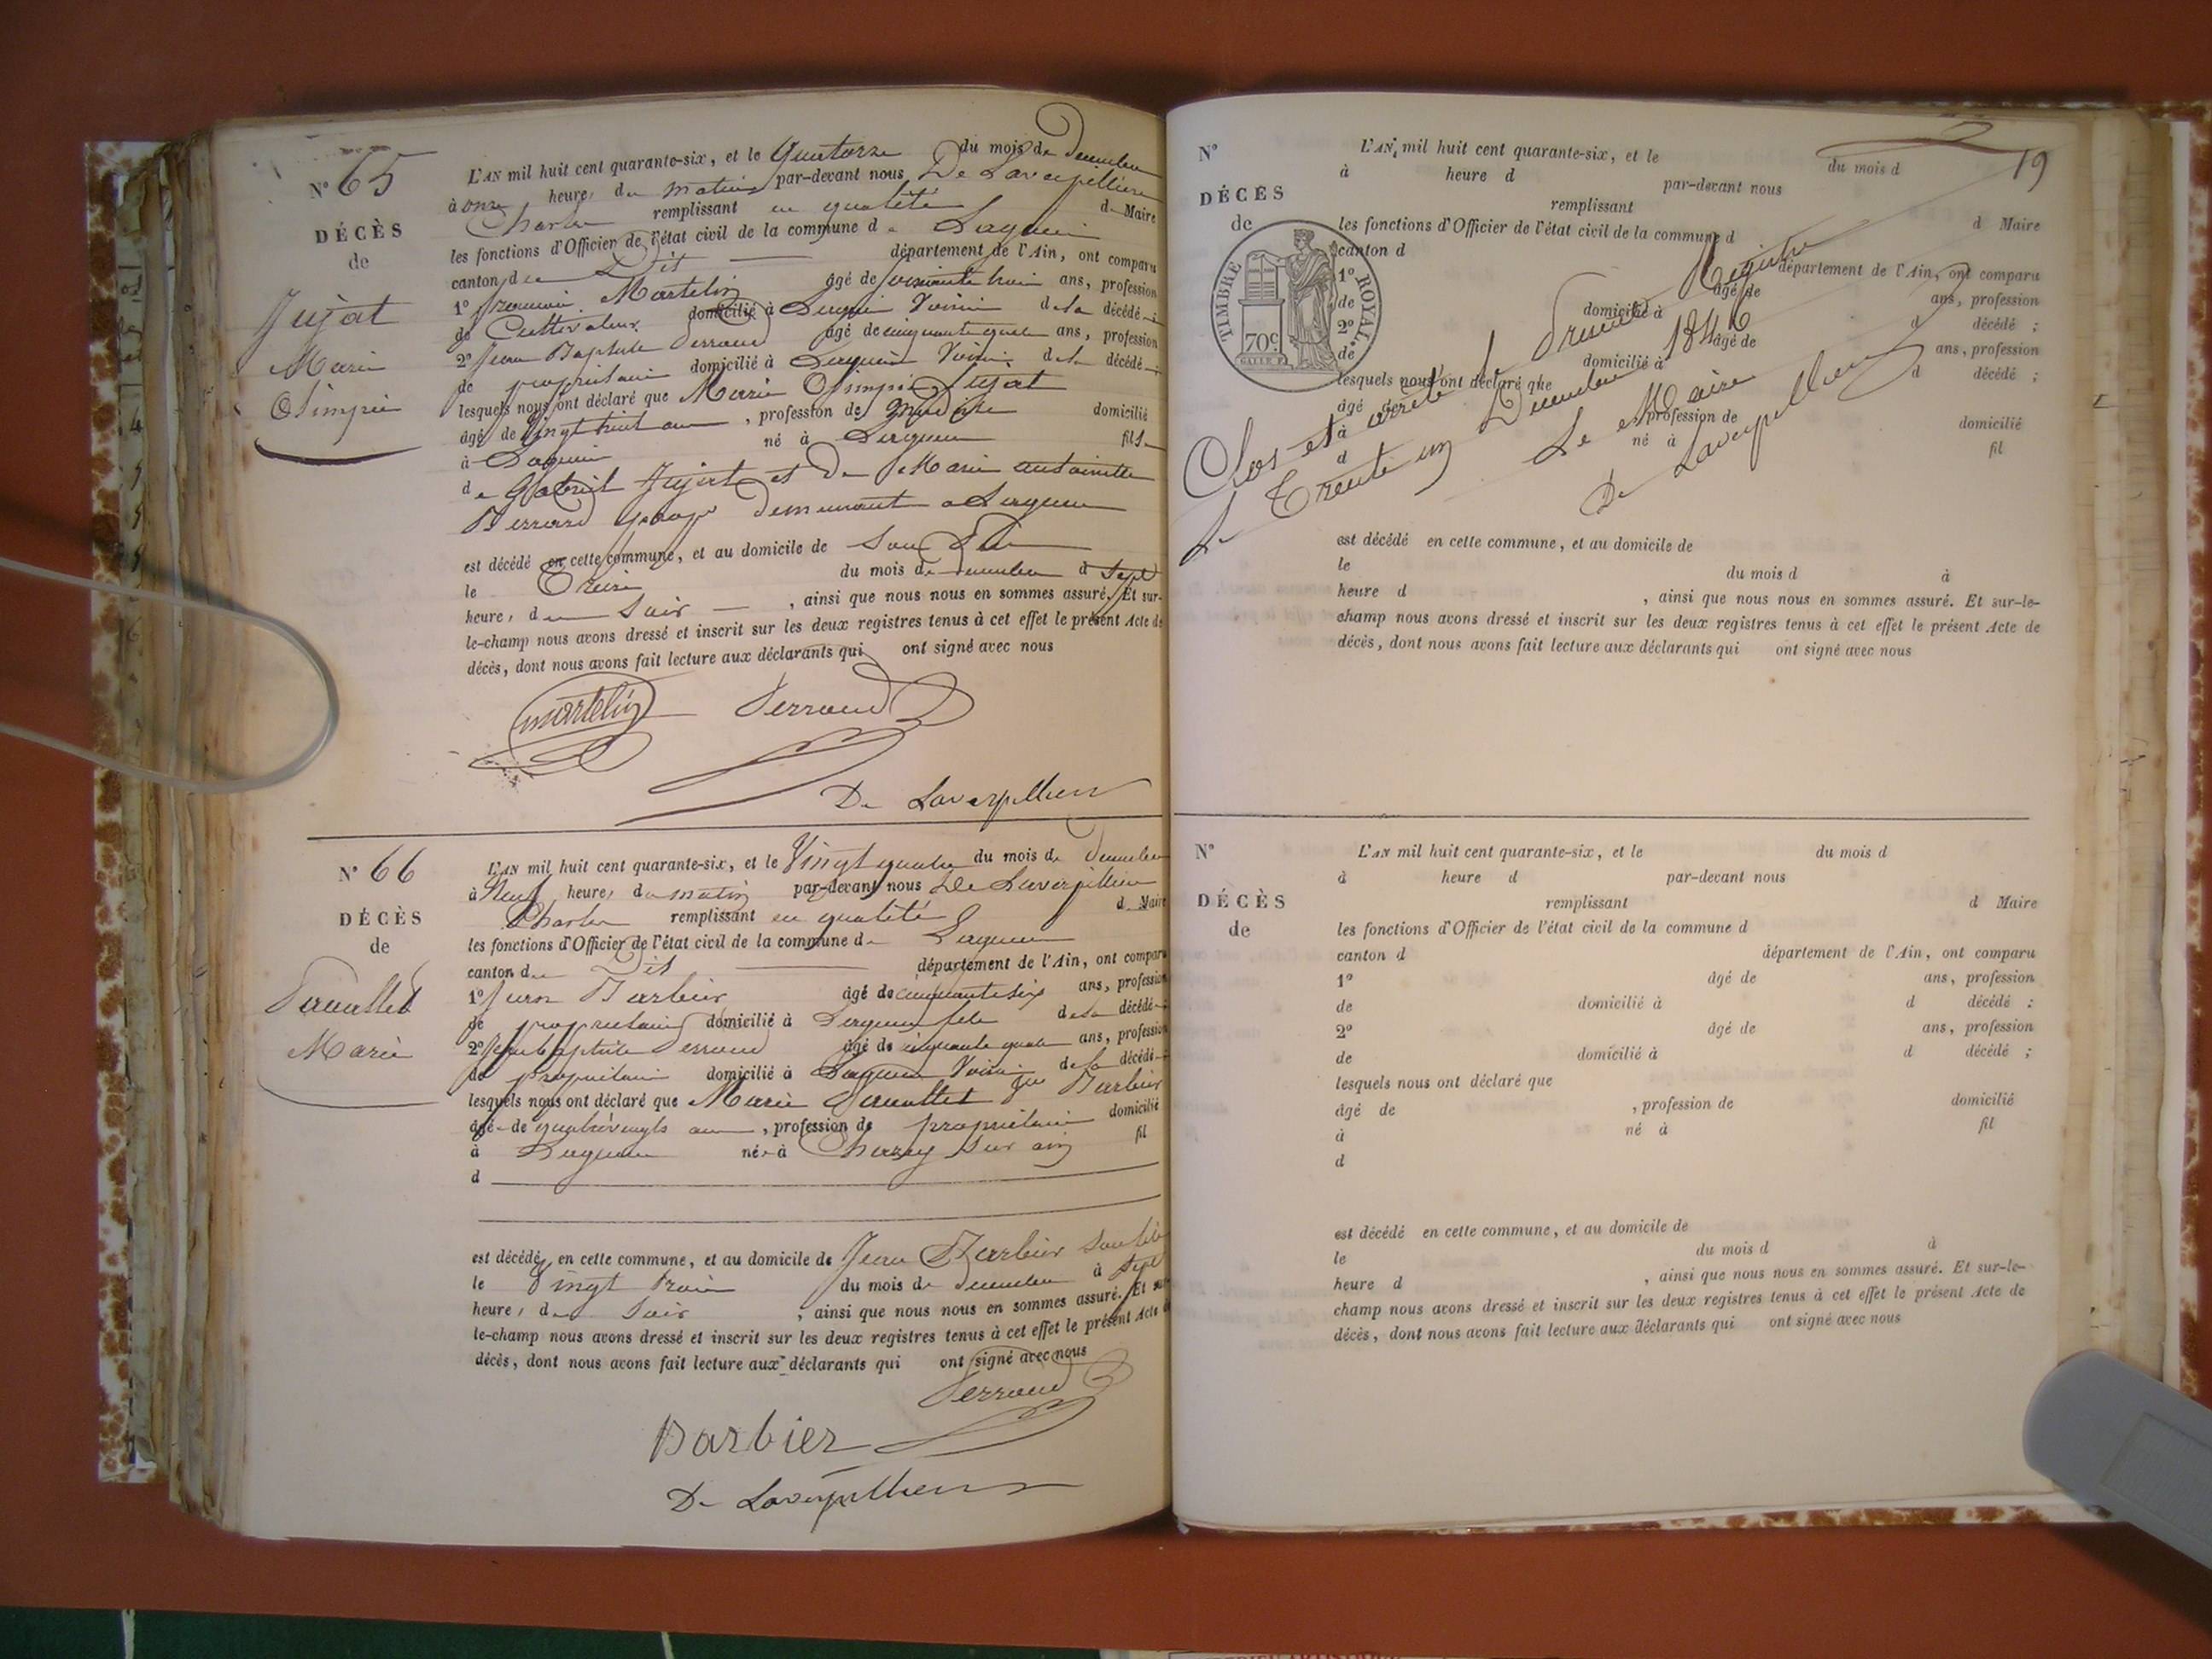 N° 65
DÉCÈS
de
Jujat
Marie
Olimpie
L'AN mil huit cent quarante-six, et le Quatorze du mois de décembre
à onze heures du matin par-devant nous De Laverpilliere
Charles remplissant en qualité d Maire
les fonctions d'Officier de l'état civil de la commune de Lagnieu
canton du Dit département de l'Ain, ont comparu
1° Martelin âgé de soixante huit ans, profession
de Cultivateur domicilié à Lagnieu Voisin de la décédé ;
2° Jean Baptiste Perraud âgé de cinquante quatre ans, profession
de propriétaire domicilié à Lagnieu Voisin de la décédé ;
lesquels nous ont déclaré que Marie Olimpie Jujat
âgé de Vingt huit ans, profession de domicilié
à Lagnieu né à Lagnieu fille
de Gabriel Jujat et de Marie antoinette
demeurant a Lagnieu
est décédé en cette commune, et au domicile de Son
le Treize du mois de décembre à Sept
heures du Soir, ainsi que nous nous en sommes assuré. Et sur-
le-champ nous avons dressé et inscrit sur les deux registres tenus à cet effet le présent Acte de
décès, dont nous avons fait lecture aux déclarants qui ont signé avec nous
martelin Perraud
De Laverpilliere
N° 66
DÉCÈS
de
Marie
L'AN mil huit cent quarante-six, et le Vingt quatre du mois de décembre
à Neuf heures du matin par-devant nous De Laverpilliere
Charles remplissant en qualité d Maire
les fonctions d'Officier de l'état civil de la commune de Lagnieu
canton du Dit département de l'Ain, ont comparu
1° Jean Barbier âgé de cinquante six ans, profession
de propriétaire domicilié à Lagnieu fils de la décédé ;
2° Jean baptiste Perraud âgé de cinquante quatre ans, profession
de propriétaire domicilié à Lagnieu Voisin de la décédé ;
lesquels nous ont déclaré que Marie Barbier
âgé de quatrevingts ans, profession de propriétaire domicilié
à Lagnieu née à Chazey sur ain fil
d
est décédé en cette commune, et au domicile de Jean Barbier Son fils
le Vingt trois du mois de décembre à Sept
heures du Soir, ainsi que nous nous en sommes assuré. Et sur-
le-champ nous avons dressé et inscrit sur les deux registres tenus à cet effet le présent Acte de
décès, dont nous avons fait lecture aux déclarants qui ont signé avec nous
Perraud
Barbier
De Laverpilliere
19
N°
DÉCÈS
de
TIMBRE ROYAL
70c
L'AN mil huit cent quarante-six, et le du mois d
à heure d par-devant nous
remplissant d Maire
les fonctions d'Officier de l'état civil de la commune d
canton d département de l'Ain, ont comparu
1° âgé de ans, profession
de domicilié à d décédé ;
2° âgé de ans, profession
de domicilié à d décédé ;
lesquels nous ont déclaré que
âgé de profession de domicilié
à né à fil
d
Clos et arrêté le Présent Registre
Le Trente un Décembre 1846
Le Maire
De Laverpilliere
est décédé en cette commune, et au domicile de
le du mois d à
heure d , ainsi que nous nous en sommes assuré. Et sur-le-
champ nous avons dressé et inscrit sur les deux registres tenus à cet effet le présent Acte de
décès, dont nous avons fait lecture aux déclarants qui ont signé avec nous
N°
DÉCÈS
de
L'AN mil huit cent quarante-six, et le du mois d
à heure d par-devant nous
remplissant d Maire
les fonctions d'Officier de l'état civil de la commune d
canton d département de l'Ain, ont comparu
1° âgé de ans, profession
de domicilié à d décédé ;
2° âgé de ans, profession
de domicilié à d décédé ;
lesquels nous ont déclaré que
âgé de , profession de domicilié
à né à fil
d
est décédé en cette commune, et au domicile de
le du mois d à
heure d , ainsi que nous nous en sommes assuré. Et sur-le-
champ nous avons dressé et inscrit sur les deux registres tenus à cet effet le présent Acte de
décès, dont nous avons fait lecture aux déclarants qui ont signé avec nous